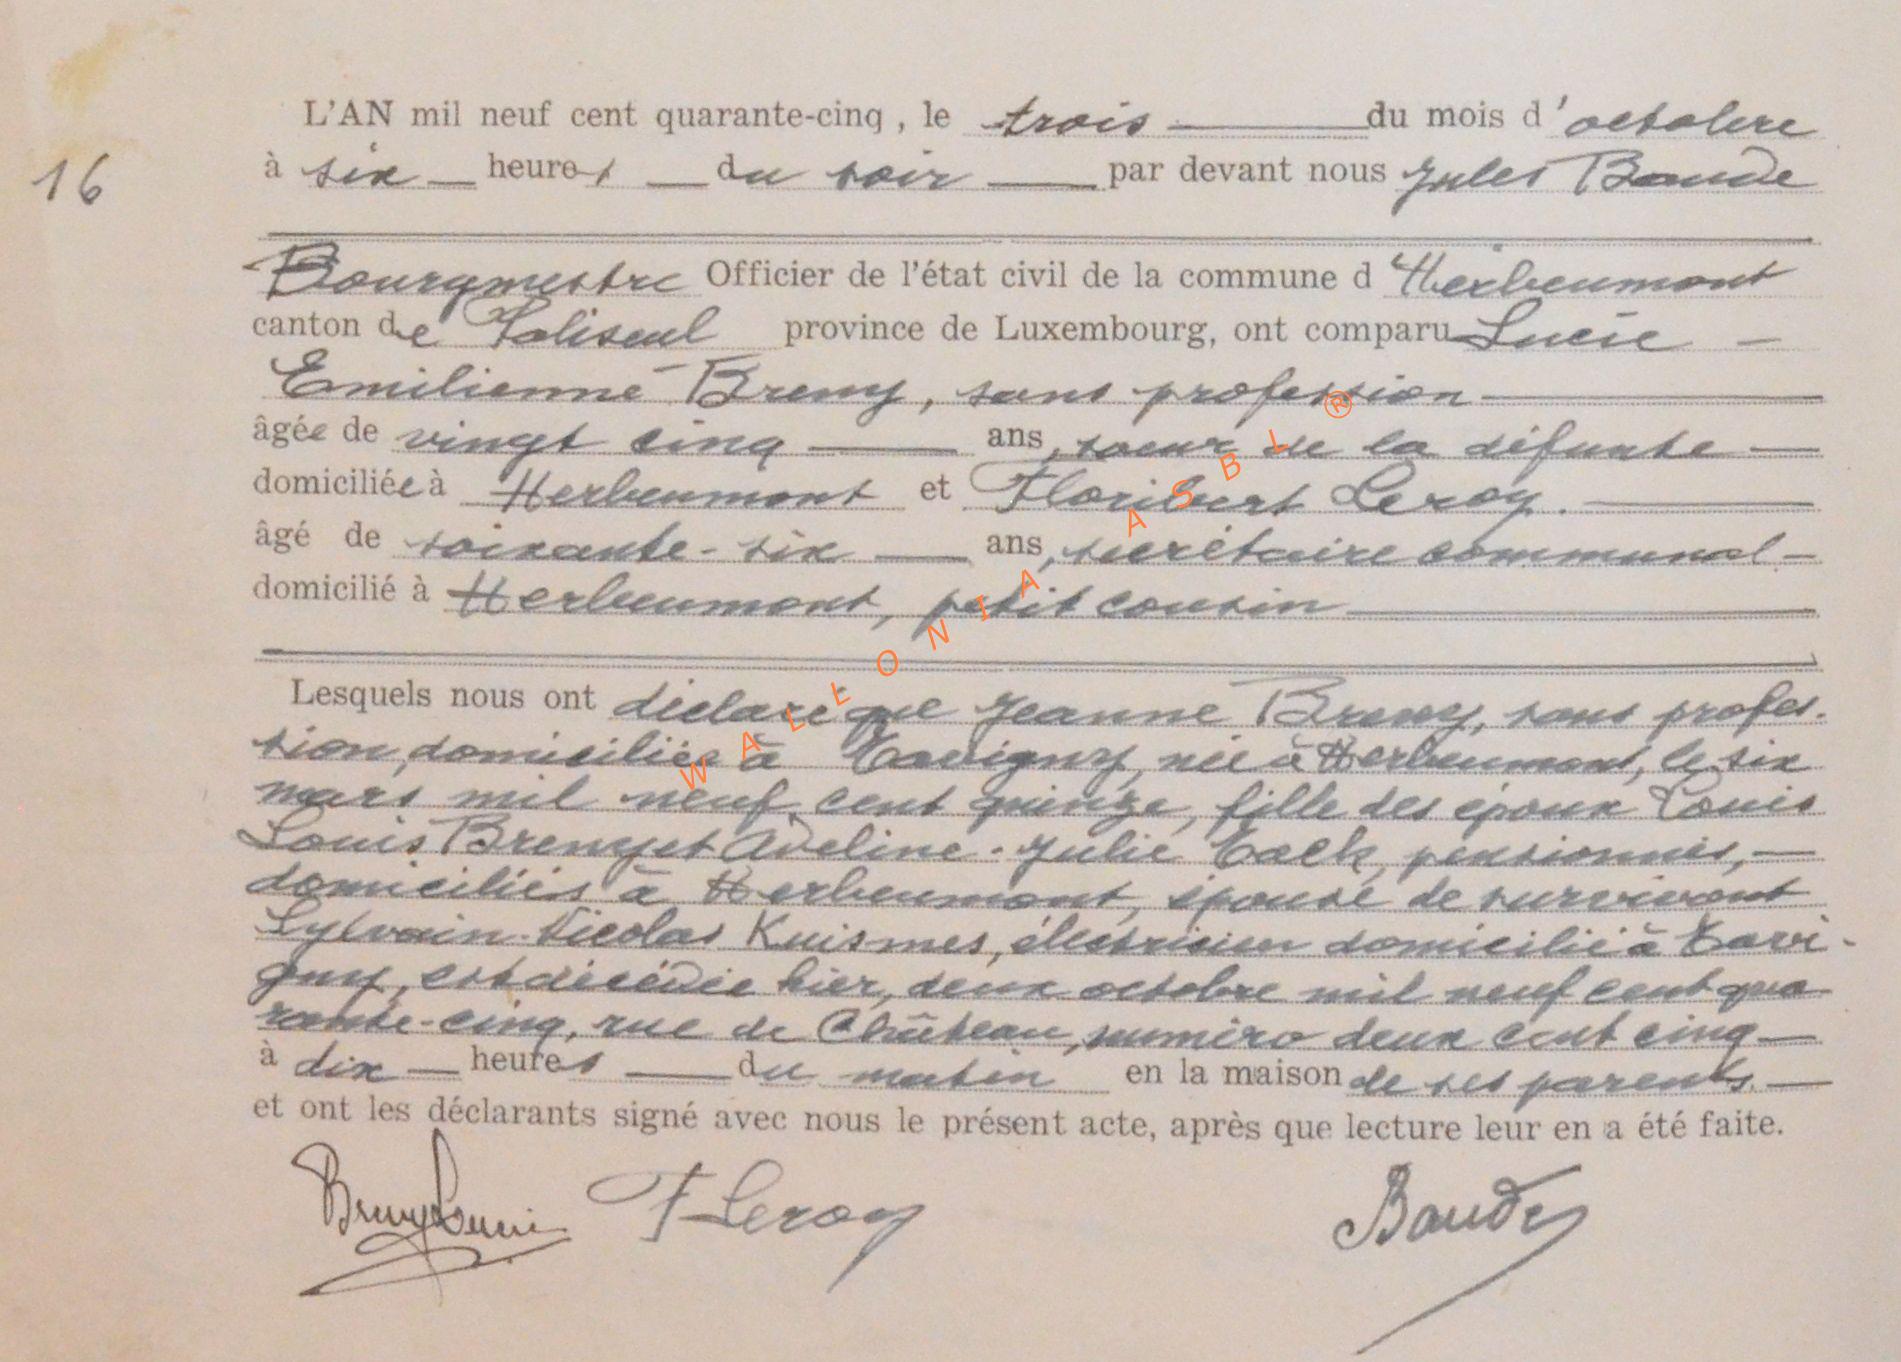 L'AN mil neuf cent quarante-cinq, le trois du mois d'octobre
16
à six heures du soir par devant nous Jules Baude
Bourgmestre Officier de l'état civil de la commune d'Herbeumont
canton de Paliseul province de Luxembourg, ont comparu Lucie
Emilienne Breny, sans profession
âgée de vingt cinq ans, soeur de la défunte
domiciliée à Herbeumont et Floribert Leroy.
âgé de soixante-six ans, secrétaire communal
domicilié à Herbeumont, petit cousin
Lesquels nous ont déclaré que Jeanne Breny, sans profes-
sion, domiciliée à Tavigny, née à Herbeumont, le six
mars mil neuf cent quinze, fille des époux Louis
Louis Breny et Adeline-Julie Talk, pensionnés,
domiciliés à Herbeumont, épouse de survivant
Sylvain-Nicolas Kuismes, électricien domicilié à Tavi-
gny, est décédée hier, deux octobre mil neuf cent qua
rante-cinq, rue de Château, numéro deux cent cinq
à dix heures du matin en la maison de ses parents.
et ont les déclarants signé avec nous le présent acte, après que lecture leur en a été faite.
Breny Lucie F Leroy Baude
WALLONIA ASBL ®